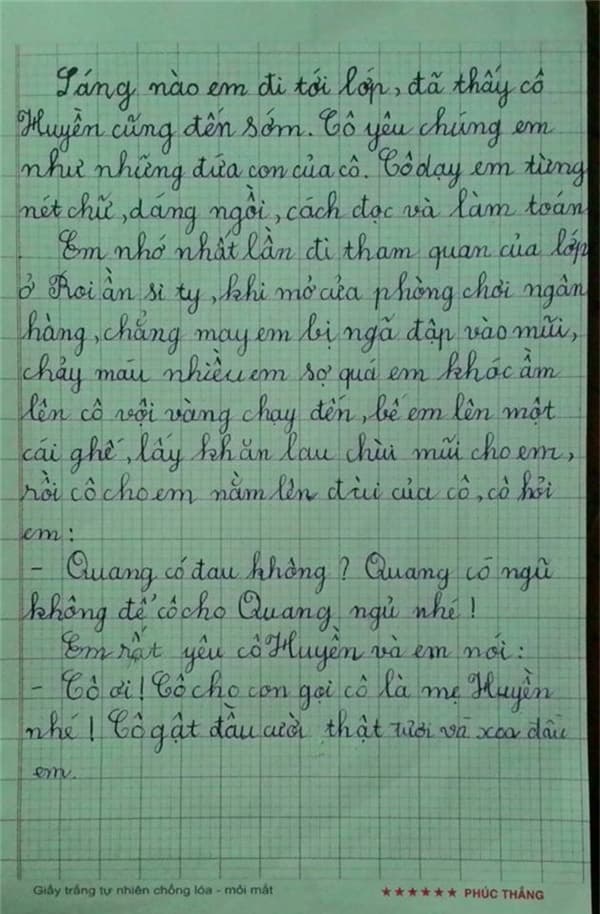 Sáng nào em đi tới lớp, đã thấy cô
Huyền cũng đến sớm. Cô yêu chúng em
như những đứa con của cô. Cô dạy em từng
nét chữ, dáng ngồi, cách đọc và làm toán
Em nhớ nhất lần đi tham quan của lớp
ở Roi ần si ty, khi mở cửa phòng chơi ngân
hàng, chẳng may em bị ngã đập vào mũi,
chảy máu nhiều em sợ quá em khóc ầm
lên cô vội vàng chạy đến, bế em lên một
cái ghế, lấy khăn lau chùi mũi cho em,
rồi cô cho em nằm lên đùi của cô, cô hỏi
em:
- Quang có đau không? Quang có ngũ
không để cô cho Quang ngủ nhé!
Em rất yêu cô Huyền và em nói:
- Cô ơi! Cô cho con gọi cô là mẹ Huyền
nhé! Cô gật đầu cười thật tươi và xoa đầu
em.
Giấy trắng tự nhiên chống lóa - mỏi mắt
★★★★★★ PHÚC THẮNG